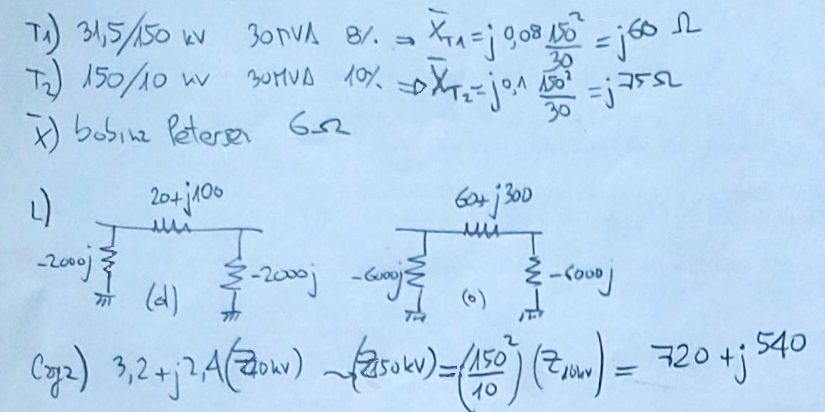 T1) 31,5/150 kv 30MVA 8% ⇒ X̄T1 = j 0,08 150²/30 = j60 Ω
T2) 150/10 kv 30MVA 10% ⇒ X̄T2 = j0,1 150²/30 = j75Ω
X̄) bobina Petersen 6Ω
20+j100 60+j300
L)
-2000j -2000j -6000j -6000j
(d) (o)
Cog2) 3,2+j2,4 (Z10kv) ~ (Z150kv) = (150/10)² (Z10kv) = 720 + j540